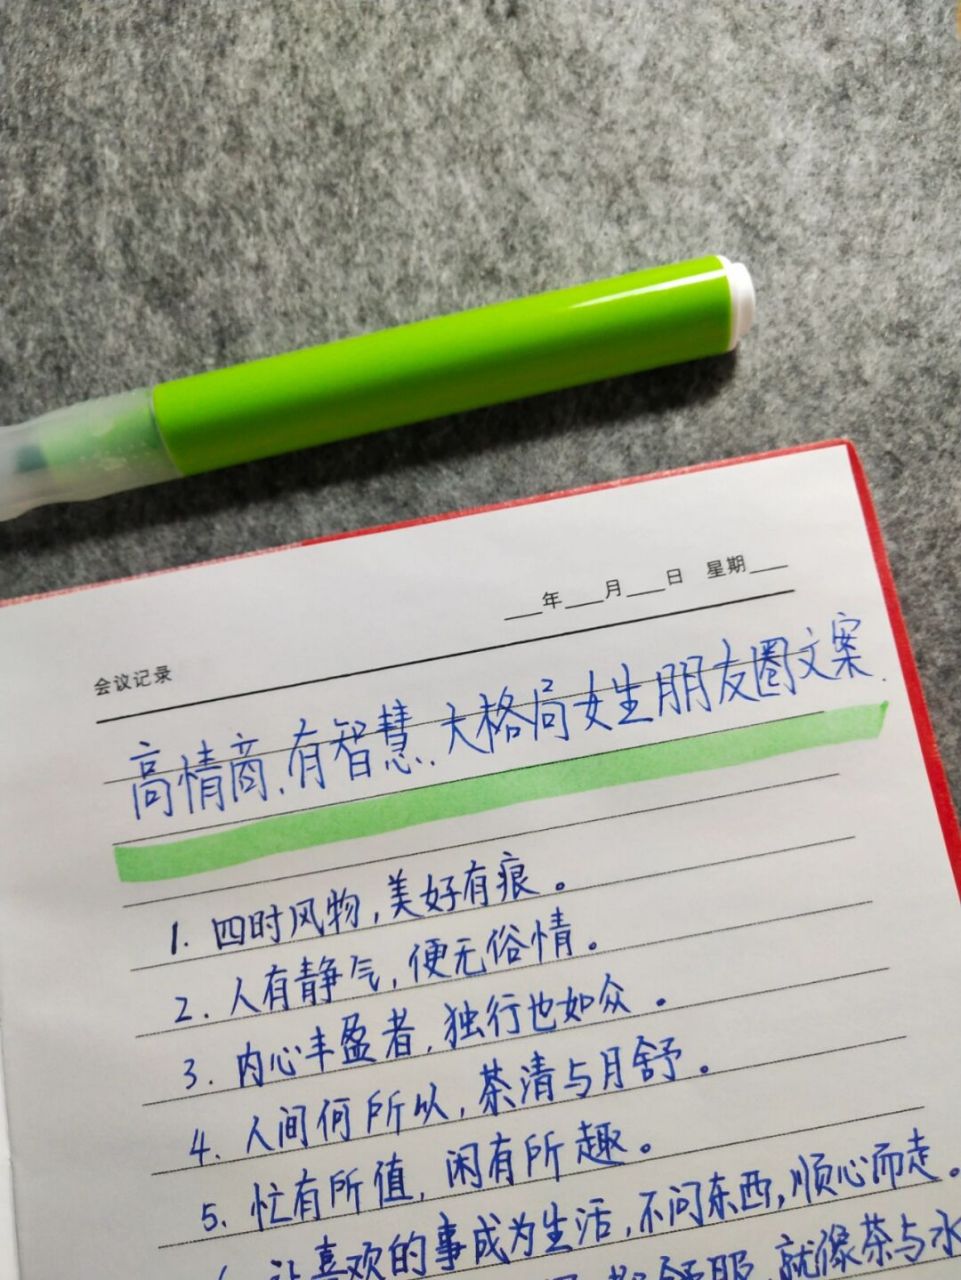 ___年___月___日 星期___
会议记录
高情商.有智慧.大格局女生朋友圈文案.
1. 四时风物,美好有痕。
2. 人有静气,便无俗情。
3. 内心丰盈者,独行也如众。
4. 人间何所以,茶清与月舒。
5. 忙有所值,闲有所趣。
让喜欢的事成为生活,不问东西,顺心而走。
就像茶与水